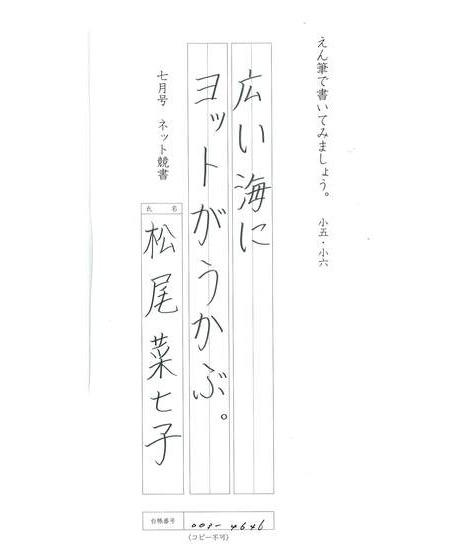 えん筆で書いてみましょう。 小五・小六
広い海に
ヨットがうかぶ。
七月号 ネット競書
氏名
松尾菜七子
台帳番号
008-4646
(コピー不可)